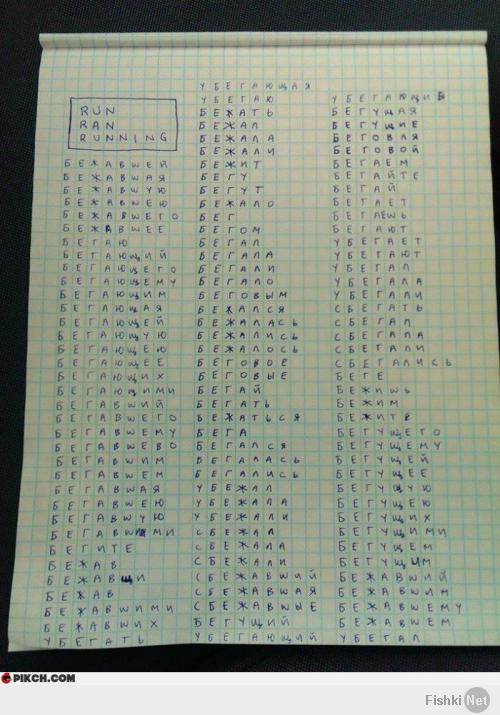 RUN
RAN
RUNNING
БЕЖАВШЕЙ
БЕЖАВШАЯ
БЕЖАВШУЮ
БЕЖАВШЕЮ
БЕЖАВШЕГО
БЕЖАВШЕЕ
БЕГАЮ
БЕГАЮЩИЙ
БЕГАЮЩЕГО
БЕГАЮЩЕМУ
БЕГАЮЩИМ
БЕГАЮЩАЯ
БЕГАЮЩЕЙ
БЕГАЮЩУЮ
БЕГАЮЩЕЮ
БЕГАЮЩЕЕ
БЕГАЮЩИХ
БЕГАЮЩИМИ
БЕГАВШИЙ
БЕГАВШЕГО
БЕГАВШЕМУ
БЕГАВШЕВО
БЕГАВШИМ
БЕГАВШЕМ
БЕГАВШАЯ
БЕГАВШЕЮ
БЕГАВШУЮ
БЕГАВШИМИ
БЕГИТЕ
БЕЖАВ
БЕЖАВЩИ
БЕЖАВ
БЕЖАВШИМИ
БЕЖАВШИХ
УБЕГАТЬ
УБЕГАЮЩАЯ
УБЕГАЮ
БЕЖАТЬ
БЕЖАЛ
БЕЖАЛА
БЕЖАЛИ
БЕЖИТ
БЕГУ
БЕГУТ
БЕЖАЛО
БЕГ
БЕГОМ
БЕГАЛ
БЕГАЛА
БЕГАЛИ
БЕГАЛО
БЕГОВЫМ
БЕЖАЛСЯ
БЕЖАЛАСЬ
БЕЖАЛИСЬ
БЕЖАЛОСЬ
БЕГОВОЕ
БЕГОВЫЕ
БЕГАЙ
БЕГАТЬ
БЕЖАТЬСЯ
БЕГА
БЕГАЛСЯ
БЕГАЛАСЬ
БЕГАЛИСЬ
УБЕЖАЛ
УБЕЖАЛА
УБЕЖАЛИ
СБЕЖАЛ
СБЕЖАЛА
СБЕЖАЛИ
СБЕЖАВШИЙ
СБЕЖАВШАЯ
СБЕЖАВШЫЕ
БЕГУЩИЙ
УБЕГАЮЩИЙ
УБЕГАЮЩИЕ
БЕГУЩАЯ
БЕГУЩИЕ
БЕГОВАЯ
БЕГОВОЙ
БЕГАЕМ
БЕГАЙТЕ
БЕГАЙ
БЕГАЕТ
БЕГАЕШЬ
БЕГАЮТ
УБЕГАЕТ
УБЕГАЮТ
УБЕГАЛ
УБЕГАЛА
УБЕГАЛИ
СБЕГАТЬ
СБЕГАЛ
СБЕГАЛА
СБЕГАЛИ
СБЕГАЛИСЬ
БЕГЕ
БЕЖИШЬ
БЕЖИМ
БЕЖИТЕ
БЕГУЩЕГО
БЕГУЩЕМУ
БЕГУЩЕЙ
БЕГУЩЕЕ
БЕГУЩУЮ
БЕГУЩЕЮ
БЕГУЩИХ
БЕГУЩИМИ
БЕГУЩЕМ
БЕГУЩЫМ
БЕЖАВШИЙ
БЕЖАВШИМ
БЕЖАВШЕМУ
БЕЖАВШЕМ
УБЕГАЛ
PIKCH.COM
Fishki Net